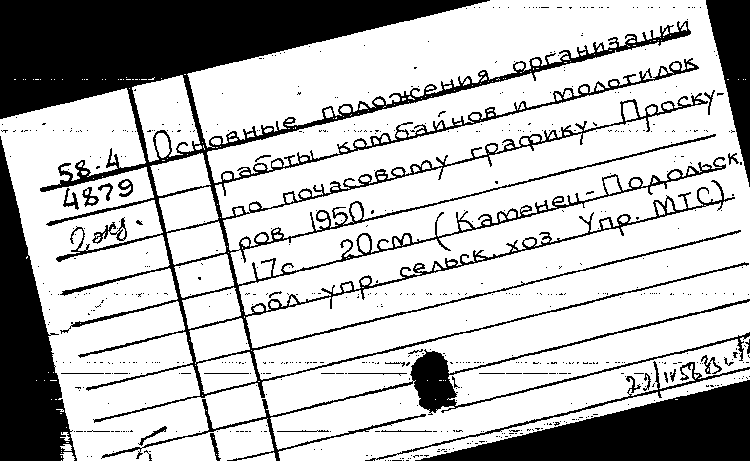 Основные положения организации
58.4
работы комбайнов и молотилок
4879
по почасовому графику. Проску-
2 экз.
ров, 1950.
17с. 20см. (Каменец-Подольск.
обл. упр. сельск. хоз. Упр. МТС).